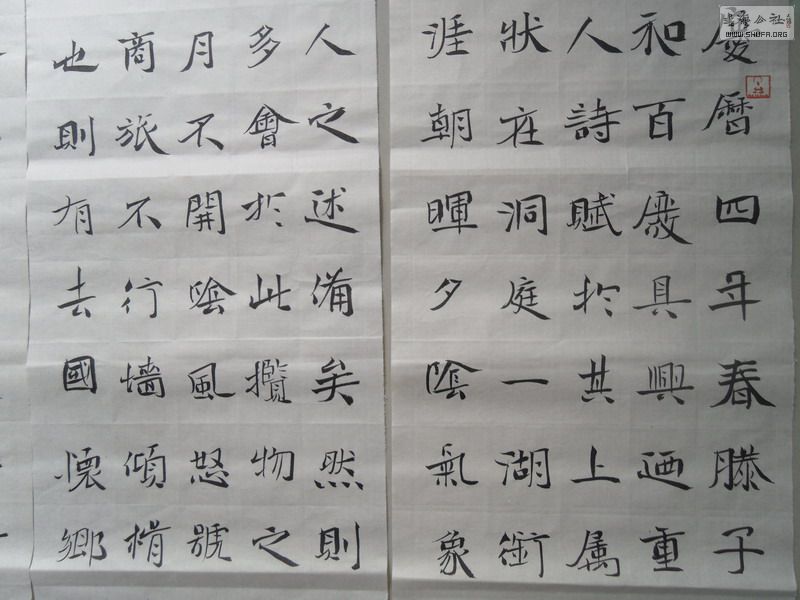 慶曆四年春滕子
和百廢具興迺重
人詩賦於其上属
狀在洞庭一湖銜
涯朝暉夕陰氣象
人之述備矣然則
多會於此攬物之
月不開陰風怒號
商旅不行墻傾楫
也則有去國懷鄉
公社
WWW.SHUFA.ORG